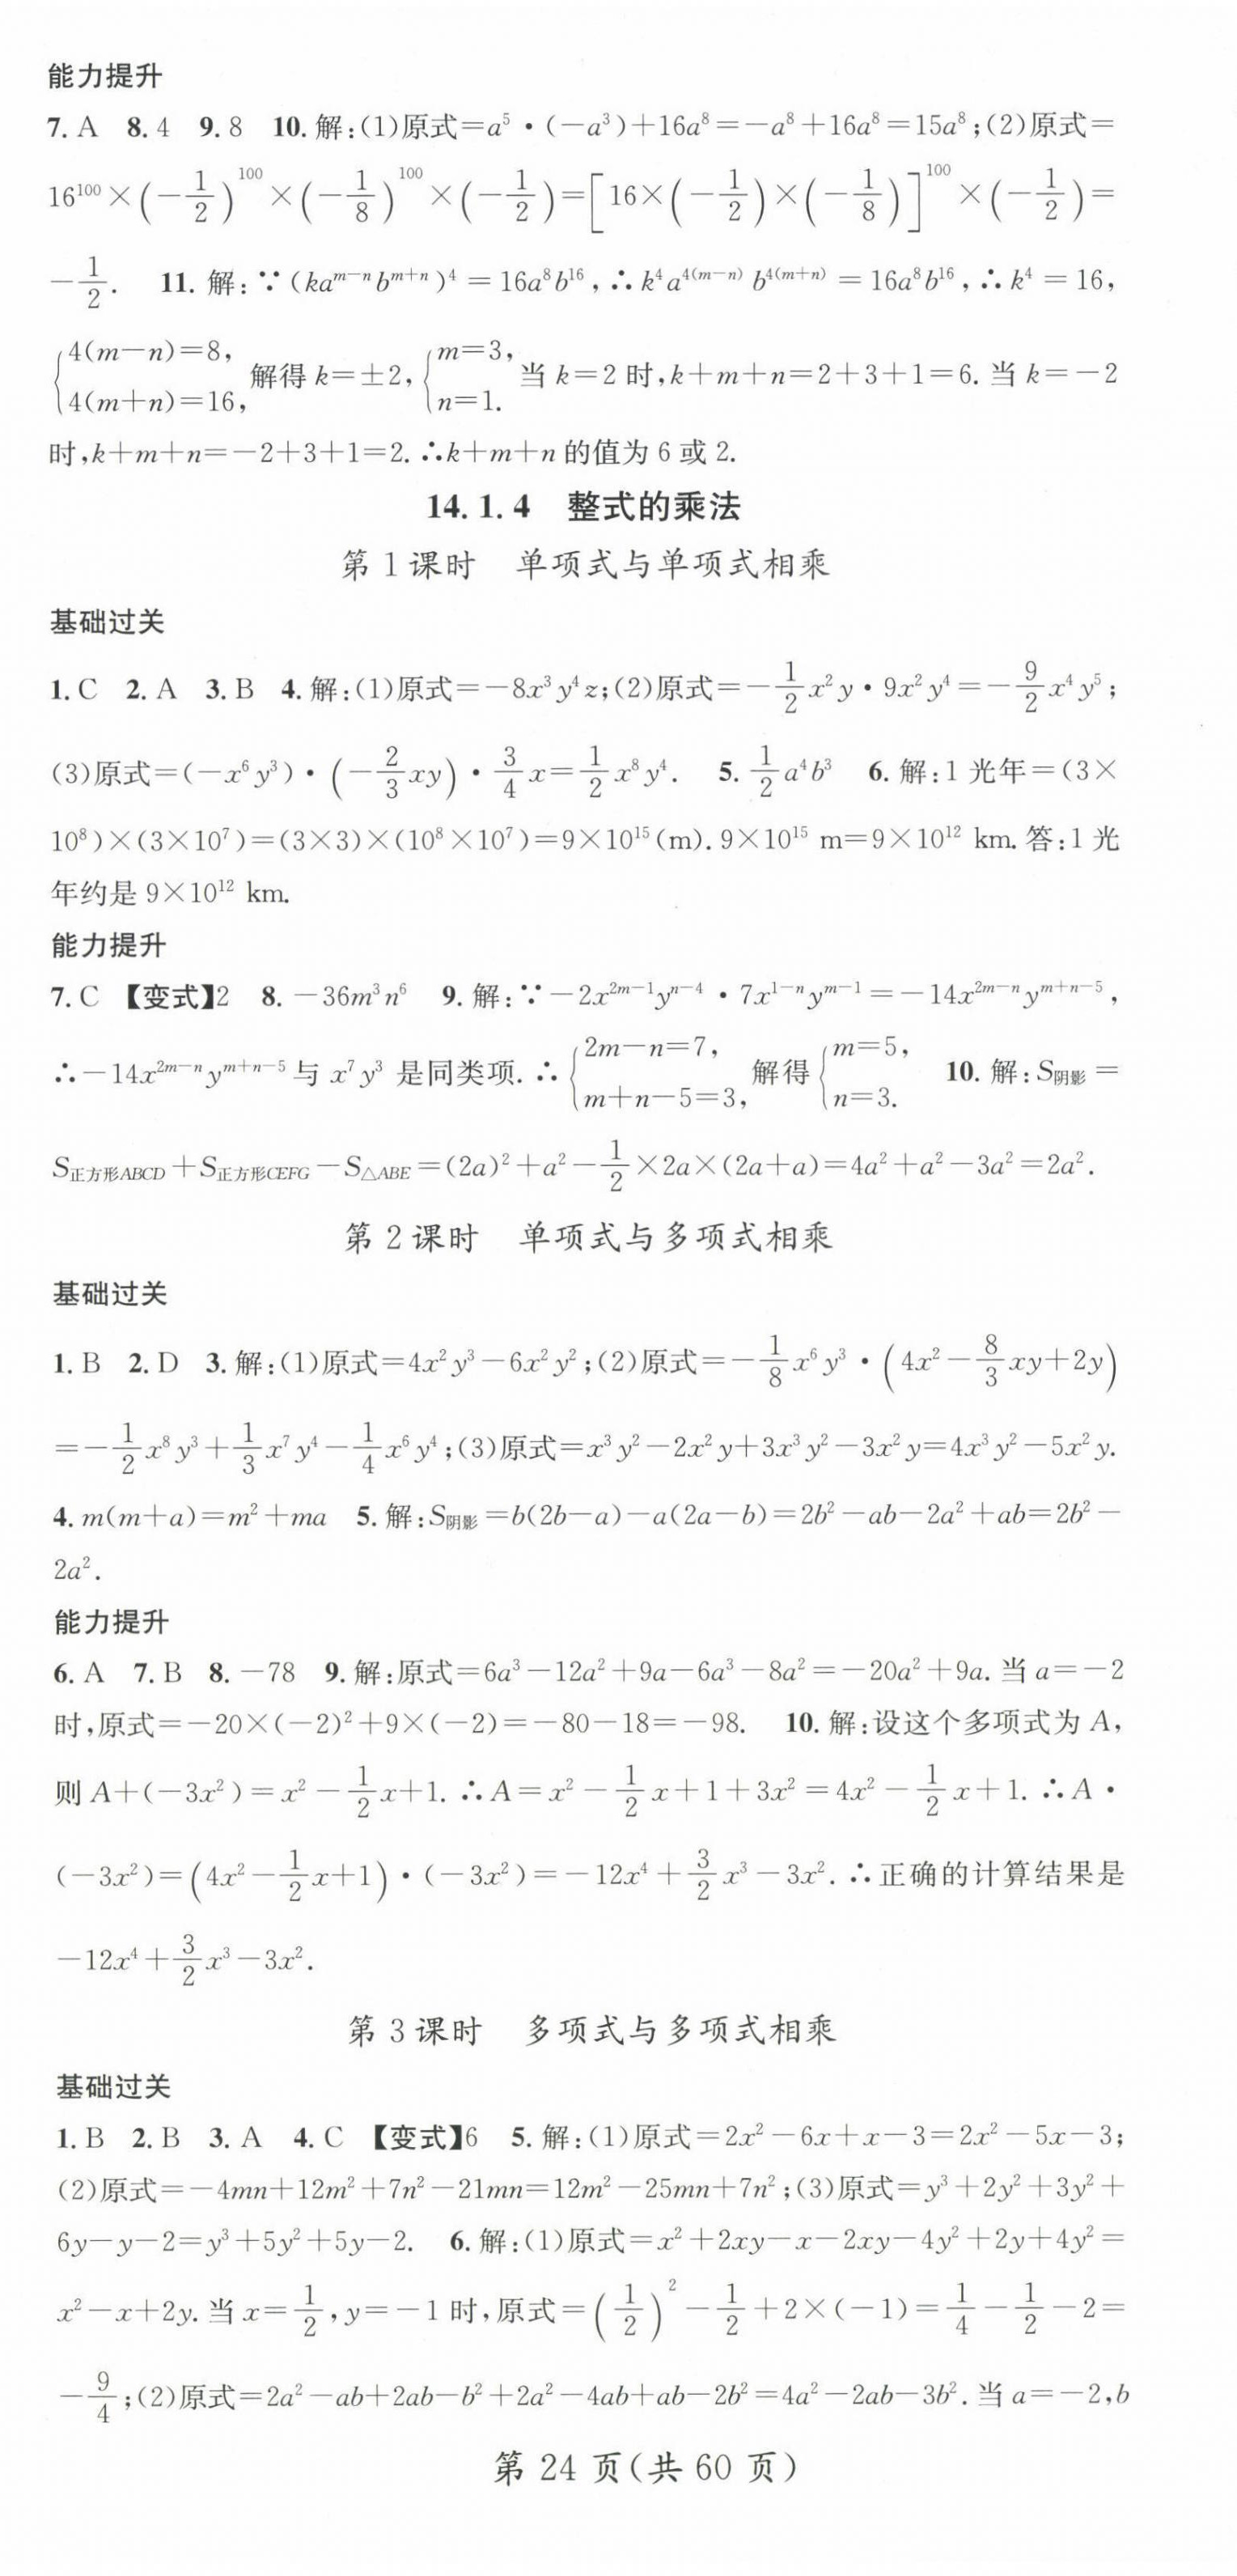 能力提升
7. A 8. 4 9. 8 10. 解:(1)原式=a⁵·(−a³)+16a⁸=−a⁸+16a⁸=15a⁸;(2)原式=
16¹⁰⁰×(−1/2)¹⁰⁰×(−1/8)¹⁰⁰×(−1/2)=[16×(−1/2)×(−1/8)]¹⁰⁰×(−1/2)=
−1/2. 11. 解:∵(ka^(m−n)b^(m+n))⁴=16a⁸b¹⁶,∴k⁴a^(4(m−n))b^(4(m+n))=16a⁸b¹⁶,∴k⁴=16,
{4(m−n)=8, 4(m+n)=16, 解得k=±2,{m=3, n=1. 当k=2时,k+m+n=2+3+1=6. 当k=−2
时,k+m+n=−2+3+1=2. ∴k+m+n的值为6或2.
14.1.4 整式的乘法
第1课时 单项式与单项式相乘
基础过关
1. C 2. A 3. B 4. 解:(1)原式=−8x³y⁴z;(2)原式=−1/2x²y·9x²y⁴=−9/2x⁴y⁵;
(3)原式=(−x⁶y³)·(−2/3xy)·3/4x=1/2x⁸y⁴. 5. 1/2a⁴b³ 6. 解:1光年=(3×
10⁸)×(3×10⁷)=(3×3)×(10⁸×10⁷)=9×10¹⁵(m). 9×10¹⁵ m=9×10¹² km. 答:1光
年约是9×10¹² km.
能力提升
7. C 【变式】2 8. −36m³n⁶ 9. 解:∵−2x^(2m−1)y^(n−4)·7x^(1−n)y^(m−1)=−14x^(2m−n)y^(m+n−5),
∴−14x^(2m−n)y^(m+n−5)与x⁷y³是同类项. ∴{2m−n=7, m+n−5=3, 解得{m=5, n=3. 10. 解:S阴影=
S正方形ABCD+S正方形CEFG−S△ABE=(2a)²+a²−1/2×2a×(2a+a)=4a²+a²−3a²=2a².
第2课时 单项式与多项式相乘
基础过关
1. B 2. D 3. 解:(1)原式=4x²y³−6x²y²;(2)原式=−1/8x⁶y³·(4x²−8/3xy+2y)
=−1/2x⁸y³+1/3x⁷y⁴−1/4x⁶y⁴;(3)原式=x³y²−2x²y+3x³y²−3x²y=4x³y²−5x²y.
4. m(m+a)=m²+ma 5. 解:S阴影=b(2b−a)−a(2a−b)=2b²−ab−2a²+ab=2b²−
2a².
能力提升
6. A 7. B 8. −78 9. 解:原式=6a³−12a²+9a−6a³−8a²=−20a²+9a. 当a=−2
时,原式=−20×(−2)²+9×(−2)=−80−18=−98. 10. 解:设这个多项式为A,
则A+(−3x²)=x²−1/2x+1. ∴A=x²−1/2x+1+3x²=4x²−1/2x+1. ∴A·
(−3x²)=(4x²−1/2x+1)·(−3x²)=−12x⁴+3/2x³−3x². ∴正确的计算结果是
−12x⁴+3/2x³−3x².
第3课时 多项式与多项式相乘
基础过关
1. B 2. B 3. A 4. C 【变式】6 5. 解:(1)原式=2x²−6x+x−3=2x²−5x−3;
(2)原式=−4mn+12m²+7n²−21mn=12m²−25mn+7n²;(3)原式=y³+2y²+3y²+
6y−y−2=y³+5y²+5y−2. 6. 解:(1)原式=x²+2xy−x−2xy−4y²+2y+4y²=
x²−x+2y. 当x=1/2,y=−1时,原式=(1/2)²−1/2+2×(−1)=1/4−1/2−2=
−9/4;(2)原式=2a²−ab+2ab−b²+2a²−4ab+ab−2b²=4a²−2ab−3b². 当a=−2,b
第24页(共60页)